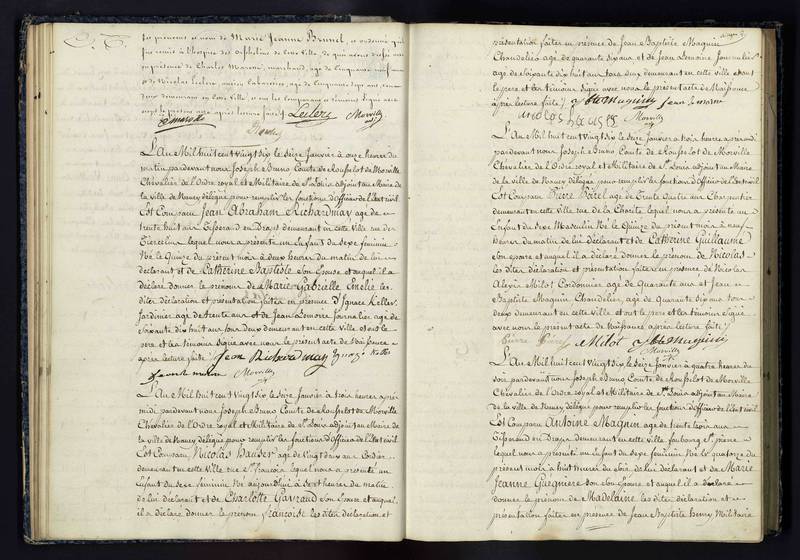 les prénoms et nom de Marie Jeanne Brunel, et ordonné qu'il
fut remis à l'hospice des Orphelins de cette Ville de quoi avons dressé acte
en présence de Charles Maronné, marchand, âgé de cinquante neuf ans
et de Nicolas Leclerc, ancien Cabaretier, âgé de cinquante sept ans, tous
deux demeurant en cette Ville, et ont les comparans et témoins signé avec
Leclerc Morville
L'An Mil huit cent Vingt six le Seize Janvier à onze heures du
matin pardevant nous Joseph Bruno Comte de Rousselot de Morville
Chevalier de l'Ordre royal et Militaire de St Louis adjoint au Maire
de la ville de Nancy délégué pour remplir les fonctions d'officier de l'état civil
Est Comparu Jean Abraham Richardmay âgé de
trente huit ans Tisserand en Draps demeurant en cette ville rue des
Tiercelins lequel nous a présenté un Enfant du sexe féminin
Né le Quinze du présent mois à deux heures du matin de lui
déclarant et de Catherine Baptiste son Epouse et auquel il a
déclaré donner les prénoms de Marie Gabrielle Emélie les
dites déclaration et présentation faites en présence d'Ignace Keller
Jardinier âgé de trente ans et de Jean Lemoine Journalier âgé de
soixante dix huit ans tous deux demeurant en cette Ville et ont le
père et les témoins signé avec nous le présent acte de Naissance
après lecture faite Jean Richardmay Ignaz Keller
Jean le moine Morville
L'An Mil huit cent Vingt six le Seize Janvier à trois heures après
midi pardevant nous Joseph Bruno Comte de Rousselot de Morville
Chevalier de l'Ordre royal et Militaire de St Louis adjoint au Maire de
la ville de Nancy délégué pour remplir les fonctions d'officier de l'état civil
Est Comparu Nicolas Hauser âgé de vingt deux ans Cordier
demeurant en cette Ville rue St François lequel nous a présenté un
Enfant du sexe féminin Né aujourd'hui à sept heures du matin
de lui déclarant et de Charlotte Gavraud son Epouse et auquel
il a déclaré donner le prénom Françoise les dites déclaration et
présentation faites en présence de Jean Baptiste Maguin
Chandelier âgé de quarante six ans et de Jean Lemoine Journalier
âgé de Soixante dix huit ans tous deux demeurant en cette ville et ont
le père et les témoins signé avec nous le présent acte de Naissance
après lecture faite JB Maguin Jean le moine
Nicolas Hauser Morville
L'An Mil huit cent Vingt six le Seize Janvier à trois heures après midi
pardevant nous Joseph Bruno Comte de Rousselot de Morville
Chevalier de l'Ordre royal et Militaire de St Louis adjoint au Maire
de la ville de Nancy délégué pour remplir les fonctions d'officier de l'état civil
Est Comparu Pierre Hurel âgé de Trente Quatre ans Charpentier
demeurant en cette ville rue de la Charité lequel nous a présenté un
Enfant du sexe Masculin Né le Quinze du présent mois à neuf
heures du matin de lui déclarant et de Catherine Guillaume
son épouse et auquel il a déclaré donner le prénom de Nicolas
les dites déclaration et présentation faites en présence de Nicolas
Alexis Milot Cordonnier âgé de Quarante ans et Jean
Baptiste Maguin Chandelier, âgé de Quarante Six ans tous
deux demeurant en cette ville et ont le père et les témoins signé
avec nous le présent acte de Naissance après lecture faite
Pierre Hurel Milot JB Maguin
Morville
L'An Mil huit cent Vingt six le Seize Janvier à quatre heures du
soir pardevant nous Joseph Bruno Comte de Rousselot de Morville
Chevalier de l'Ordre royal et Militaire de St Louis adjoint au Maire
de la ville de Nancy délégué pour remplir les fonctions d'officier de l'état civil
Est Comparu Antoine Magnin âgé de trente trois ans
Tisserand en Draps demeurant en cette ville faubourg St pierre
lequel nous a présenté un Enfant du sexe féminin Né le quatorze du
présent mois à huit heures du soir de lui déclarant et de Marie
Jeanne Guignere son Epouse et auquel il a déclaré
donner le prénom de Madelaine les dites déclaration et
présentation faites en présence de Jean Baptiste Henry Militaire